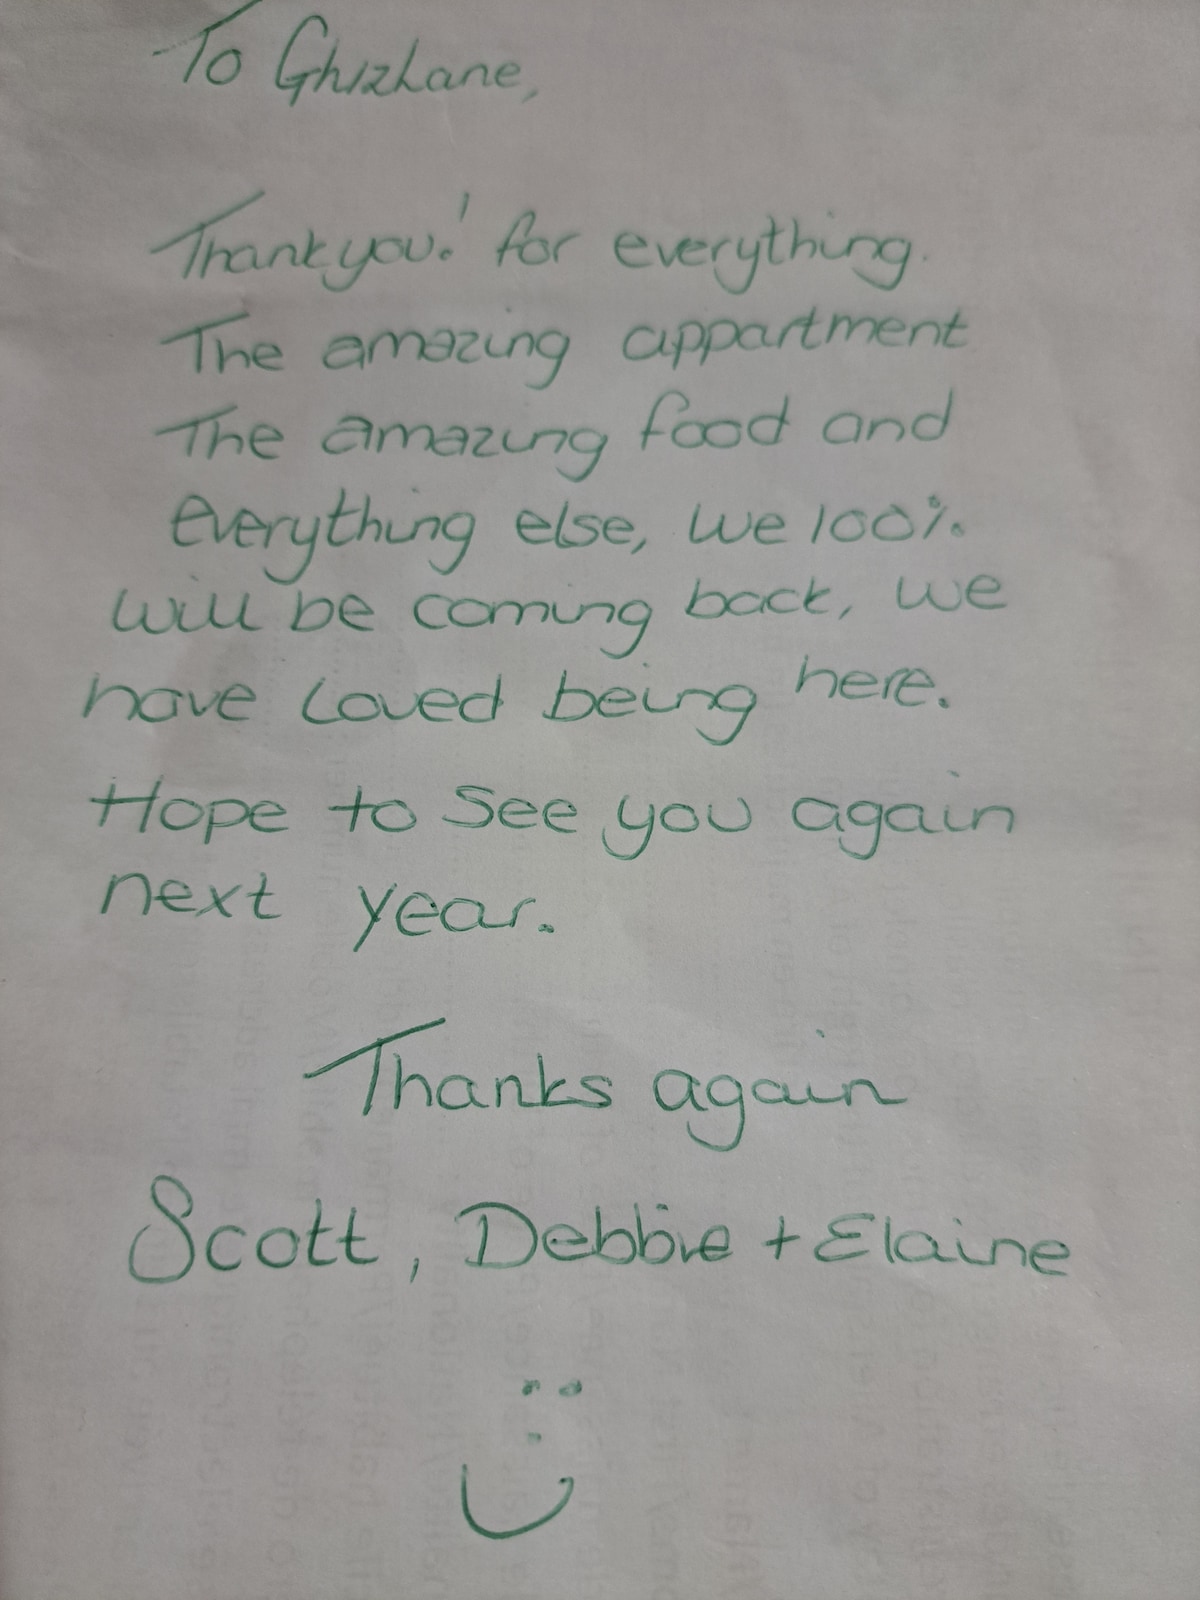 To Ghizlane,
Thankyou! for everything.
The amazing appartment
The amazing food and
everything else, we 100%
will be coming back, we
have loved being here.
Hope to see you again
next year.
Thanks again
Scott, Debbie + Elaine